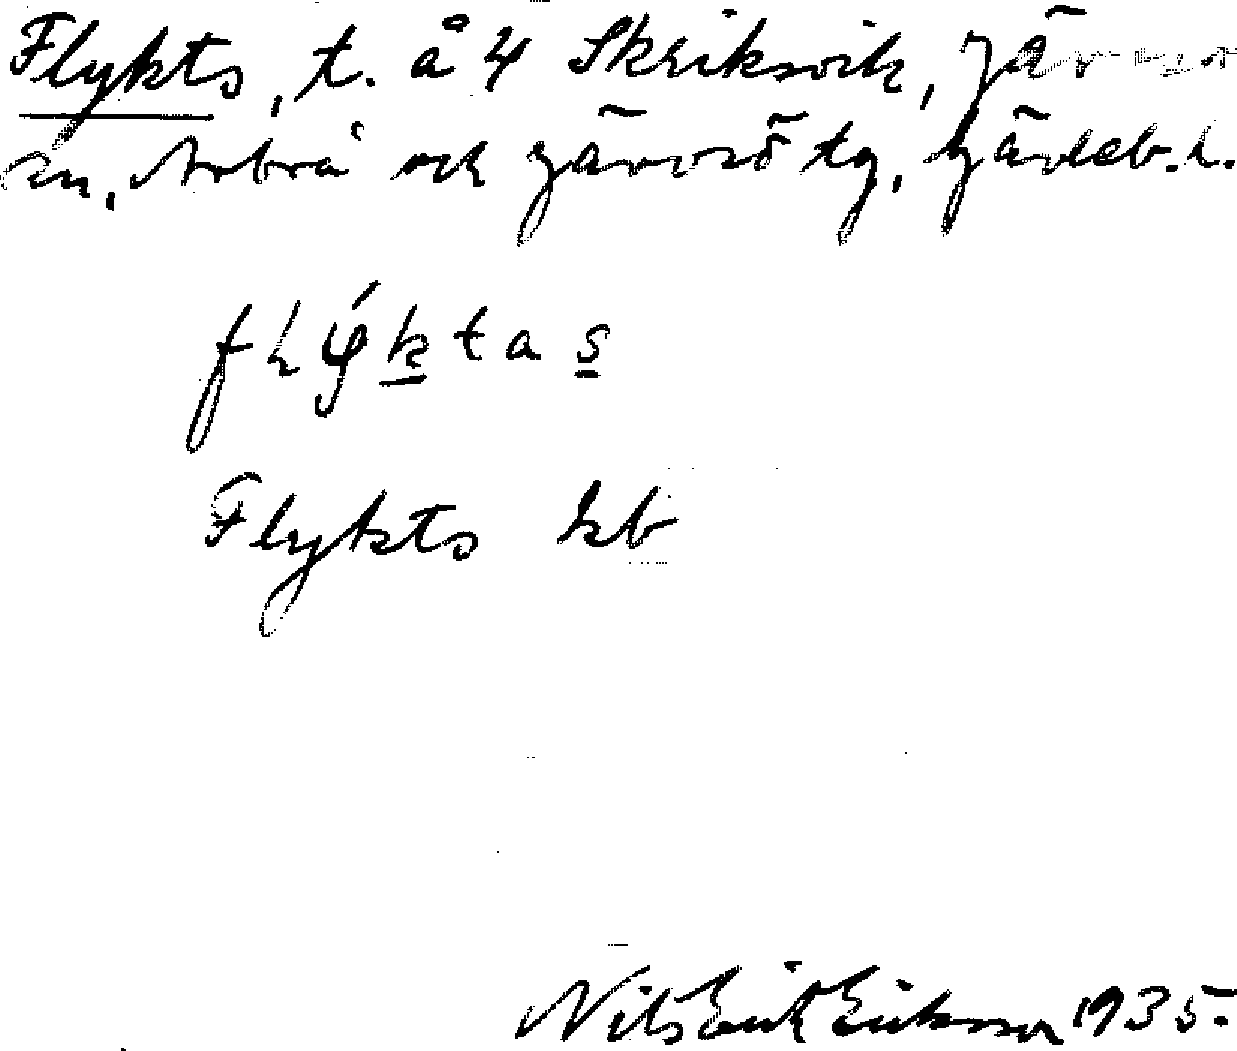 Flykts, t. å 4 Skriksvik, Järvsö
sn, Arbrå och Järvsö tg, Gävleb. l.
flýktas
Flykts kb
Nils Erik Eriksson 1935.